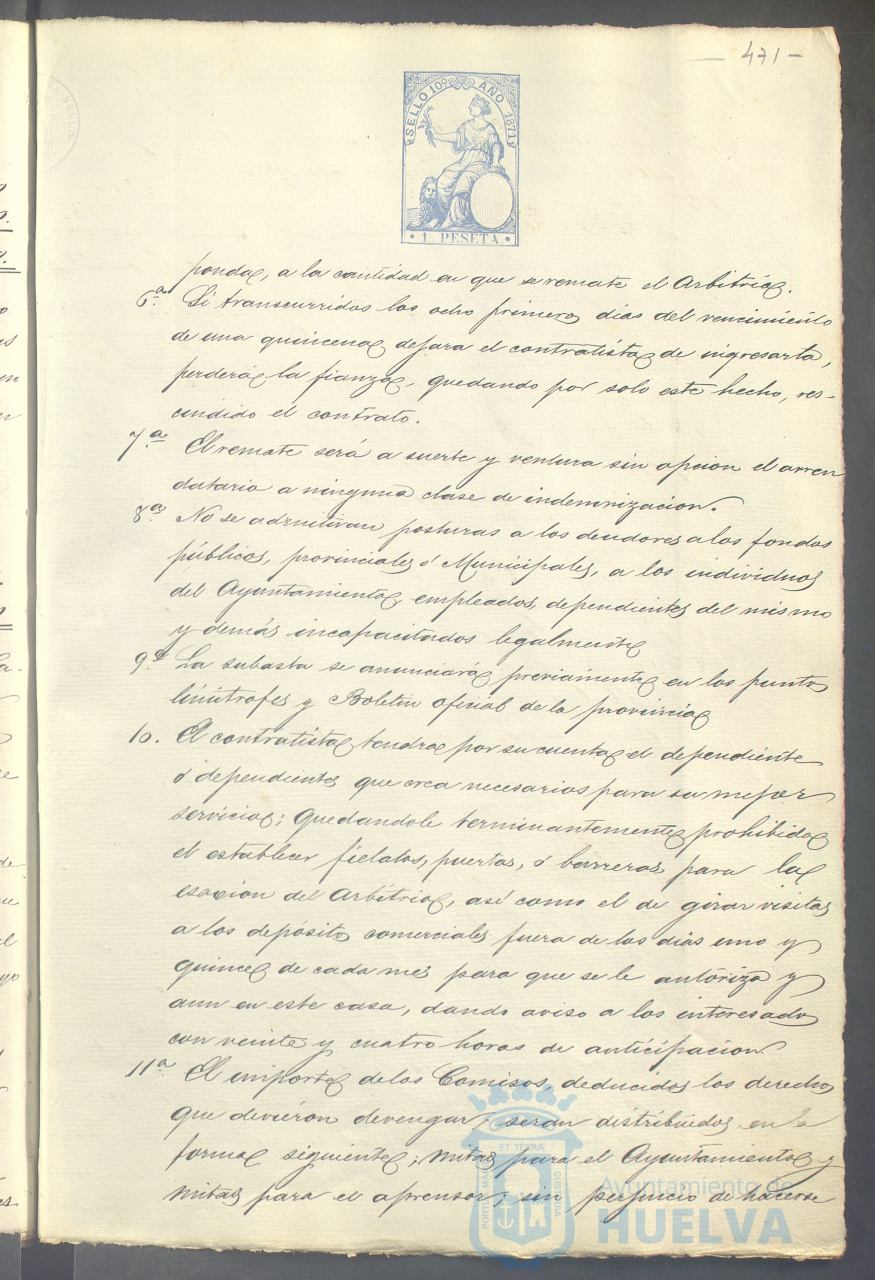 - 471 -
SELLO 10º AÑO 1871
• 1 PESETA •
ponda, a la cantidad en que se remate el Arbitrio.
6ª Si transcurridos los ocho primeros dias del vencimiento
de una quincena dejara el contratista de ingresarla,
perderá la fianza, quedando por solo este hecho, res-
cindido el contrato.
7ª El remate será a suerte y ventura sin opcion el arren
datario a ninguna clase de indemnizacion.
8ª No se admitiran posturas a los deudores a los fondos
públicos, provinciales ó Municipales, a los individuos
del Ayuntamiento, empleados, dependientes del mismo
y demás incapacitados legalmente
9ª La subasta se anunciará previamente en los puntos
limítrofes y Boletin oficial de la provincia
10. El contratista tendra por su cuenta el dependiente
ó dependientes que crea necesarios para su mejor
servicio; quedandole terminantemente prohibido
el establecer fielatos, puertas, ó barreras para la
esacion del Arbitrio, así como el de girar visitas
a los depósitos comerciales fuera de los dias uno y
quince de cada mes para que se le autoriza y
aun en este caso, dando aviso a los interesados
con veinte y cuatro horas de anticipacion
11ª El importe de los Comisos, deducidos los derechos
que devieron devengar, seran distribuidos en la
forma siguiente; mitad para el Ayuntamiento y
mitad para el aprensor; sin perjuicio de hacerse
Ayuntamiento de
HUELVA